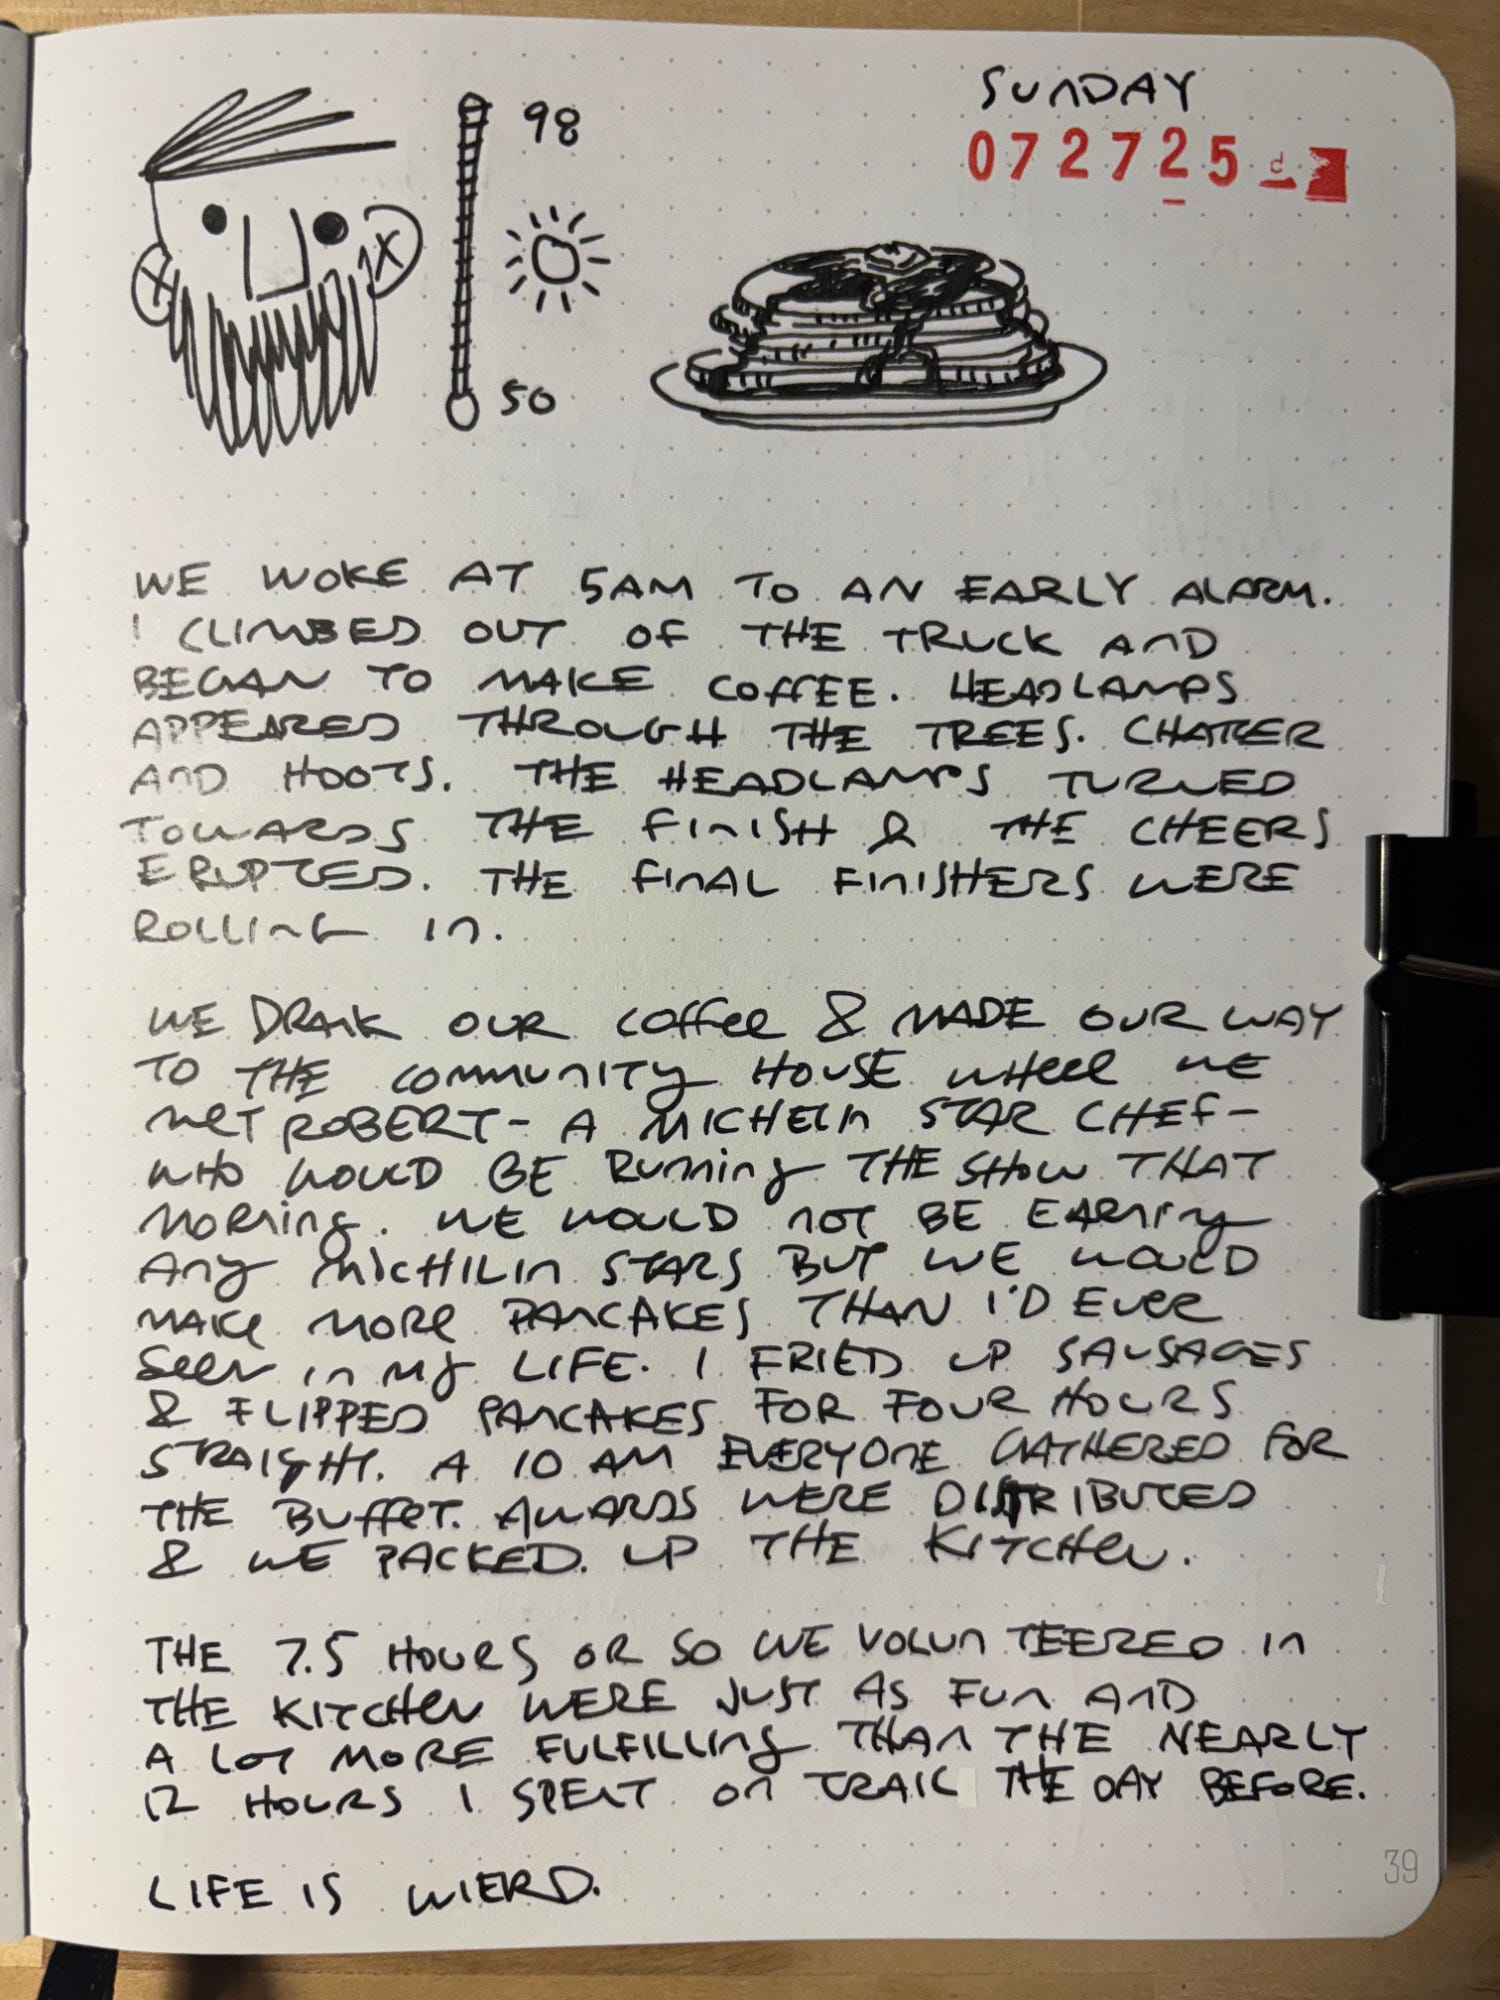 SUNDAY
072725
98
50
WE WOKE AT 5AM TO AN EARLY ALARM.
I CLIMBED OUT OF THE TRUCK AND
BEGAN TO MAKE COFFEE. HEADLAMPS
APPEARED THROUGH THE TREES. CHATTER
AND HOOTS. THE HEADLAMPS TURNED
TOWARDS THE FINISH & THE CHEERS
ERUPTED. THE FINAL FINISHERS WERE
ROLLING IN.
WE DRANK OUR COFFEE & MADE OUR WAY
TO THE COMMUNITY HOUSE WHERE WE
MET ROBERT - A MICHELIN STAR CHEF -
WHO WOULD BE RUNNING THE SHOW THAT
MORNING. WE WOULD NOT BE EARNING
ANY MICHILIN STARS BUT WE WOULD
MAKE MORE PANCAKES THAN I'D EVER
SEEN IN MY LIFE. I FRIED UP SAUSAGES
& FLIPPED PANCAKES FOR FOUR HOURS
STRAIGHT. A 10 AM EVERYONE GATHERED FOR
THE BUFFET. AWARDS WERE DISTRIBUTED
& WE PACKED UP THE KITCHEN.
THE 7.5 HOURS OR SO WE VOLUNTEERED IN
THE KITCHEN WERE JUST AS FUN AND
A LOT MORE FULFILLING THAN THE NEARLY
12 HOURS I SPENT ON TRAIL THE DAY BEFORE.
LIFE IS WIERD.
39